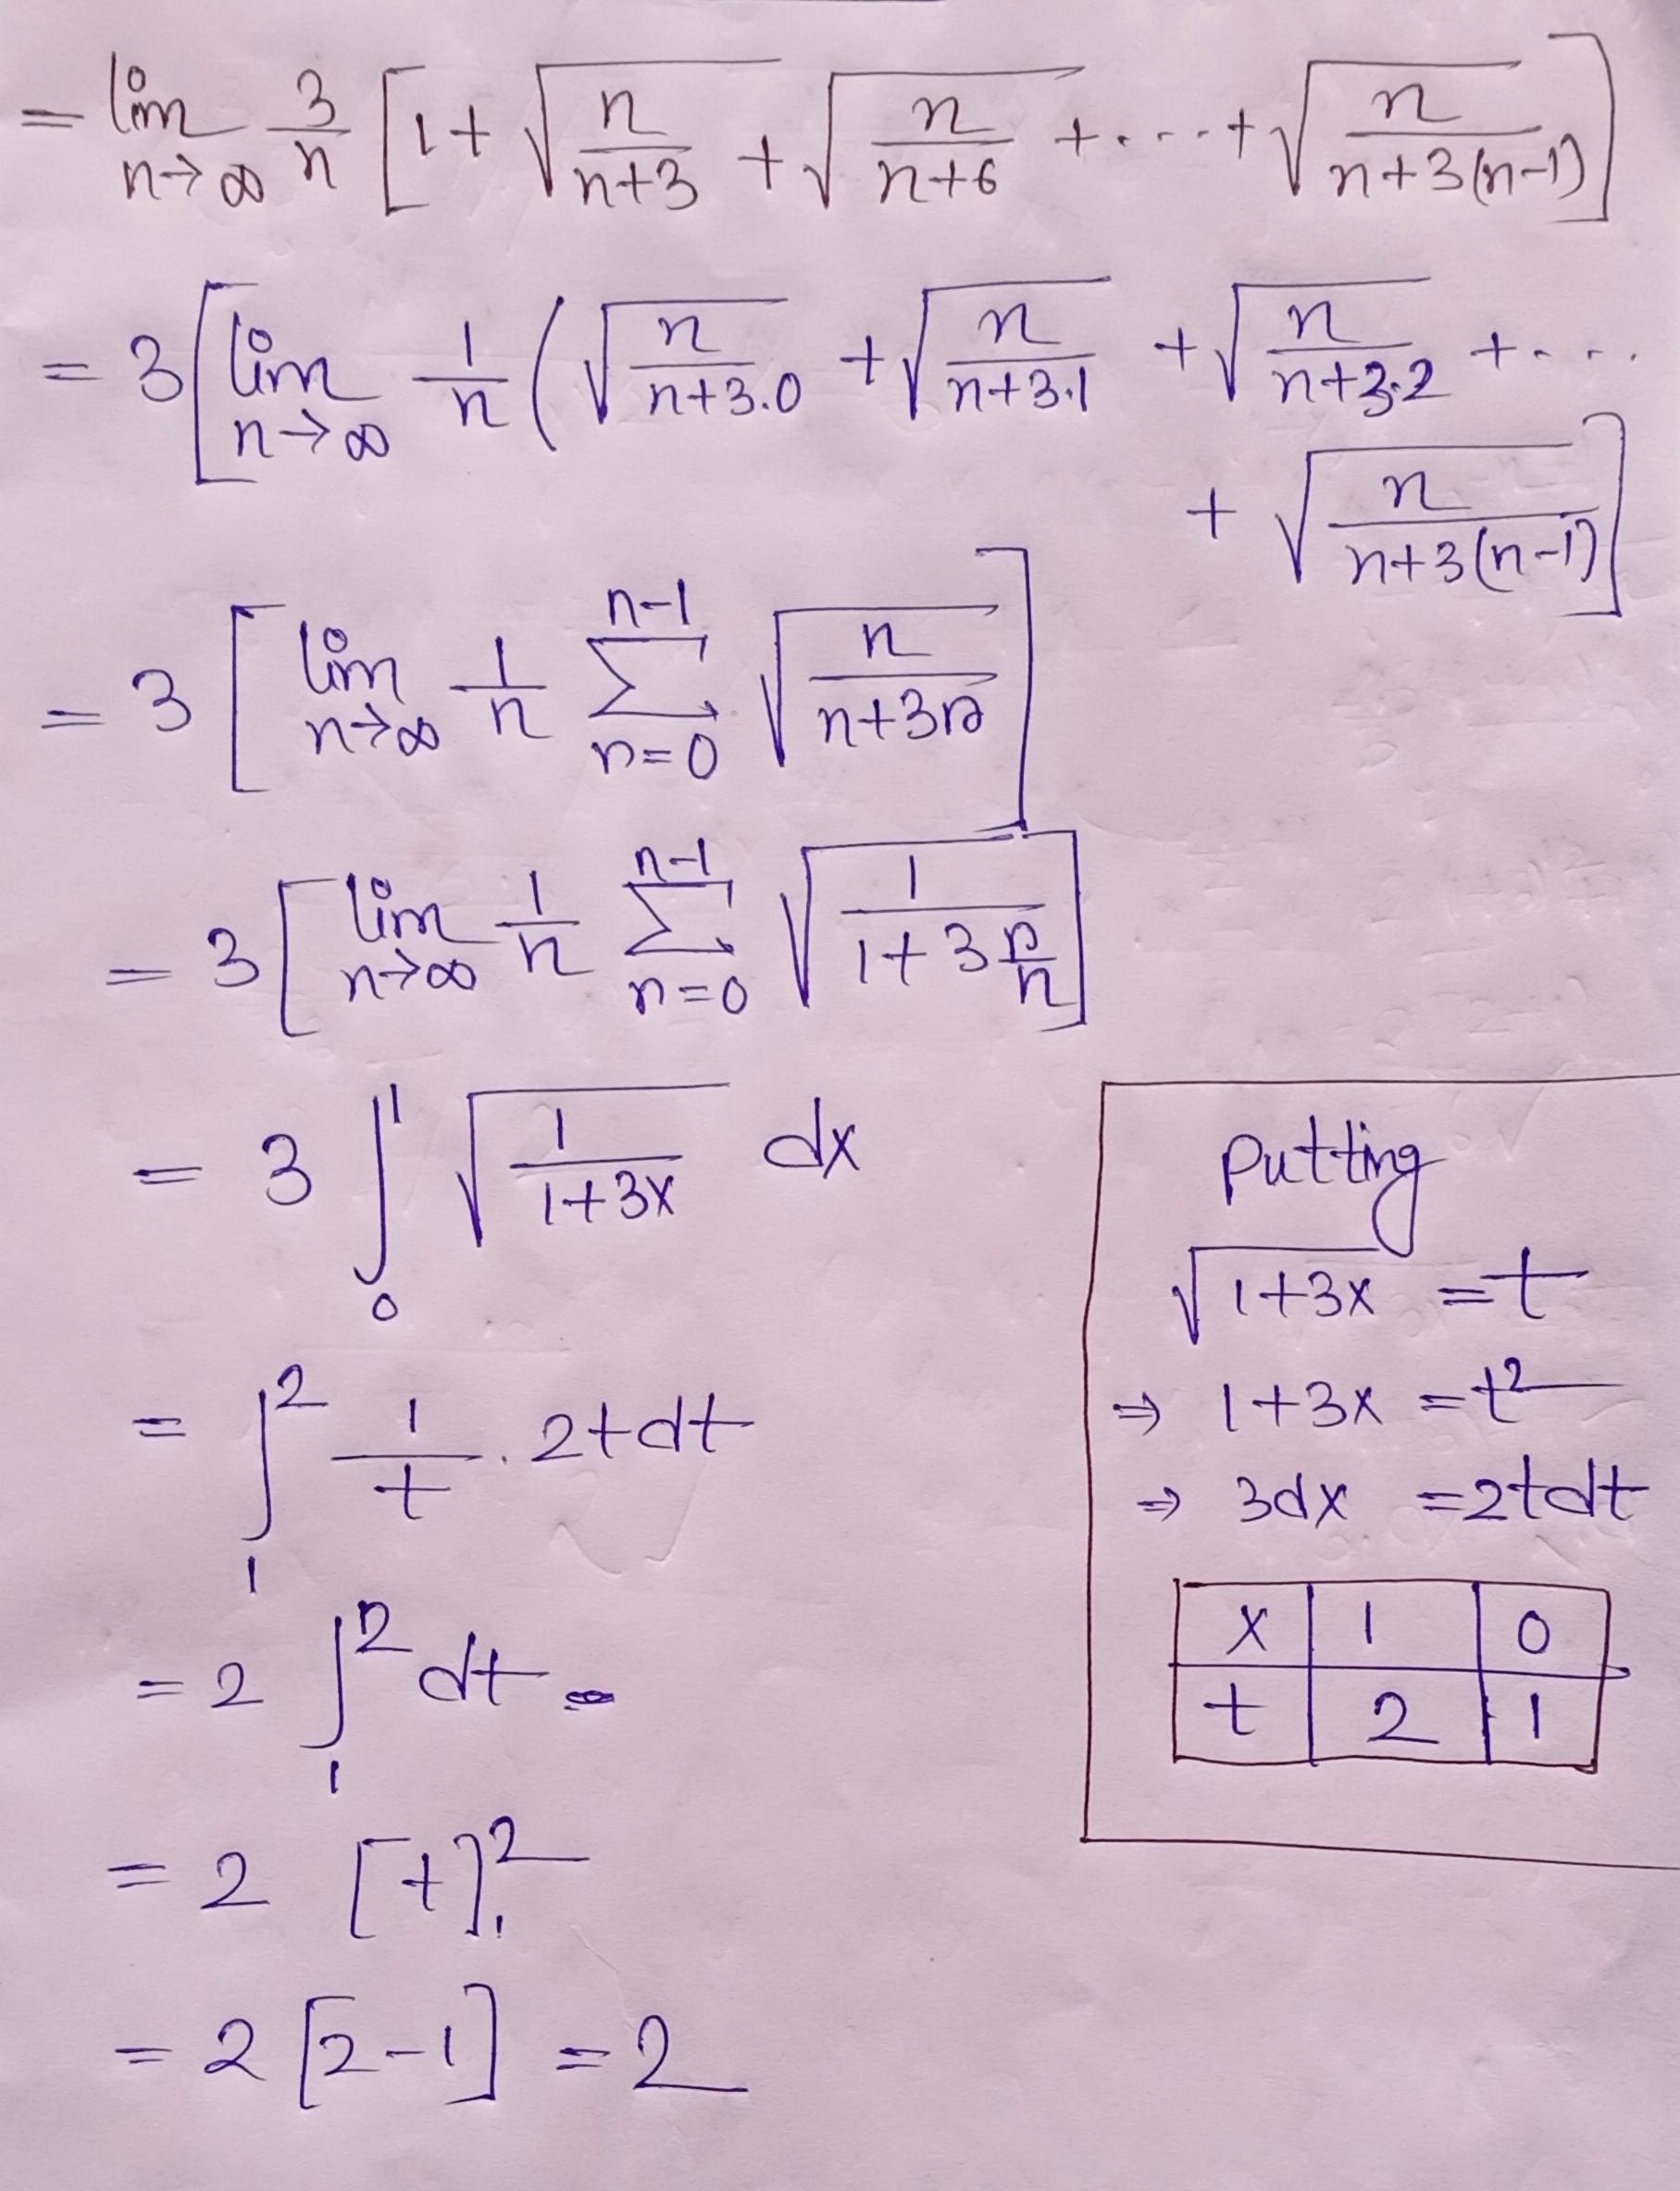 = lim n→∞ 3/n [1 + √(n/(n+3)) + √(n/(n+6)) + .... + √(n/(n+3(n-1)))]
= 3[lim n→∞ 1/n (√(n/(n+3.0)) + √(n/(n+3.1)) + √(n/(n+3.2)) + ....
+ √(n/(n+3(n-1)))]
= 3 [lim n→∞ 1/n ∑_{r=0}^{n-1} √(n/(n+3r))]
= 3[lim n→∞ 1/n ∑_{r=0}^{n-1} √(1/(1+3 r/n))]
= 3 ∫_0^1 √(1/(1+3x)) dx
= ∫_1^2 1/t . 2tdt
= 2 ∫_1^2 dt
= 2 [t]_1^2
= 2 [2-1] = 2
Putting
√(1+3x) = t
⇒ 1+3x = t²
⇒ 3dx = 2tdt
x | 1 | 0
t | 2 | 1